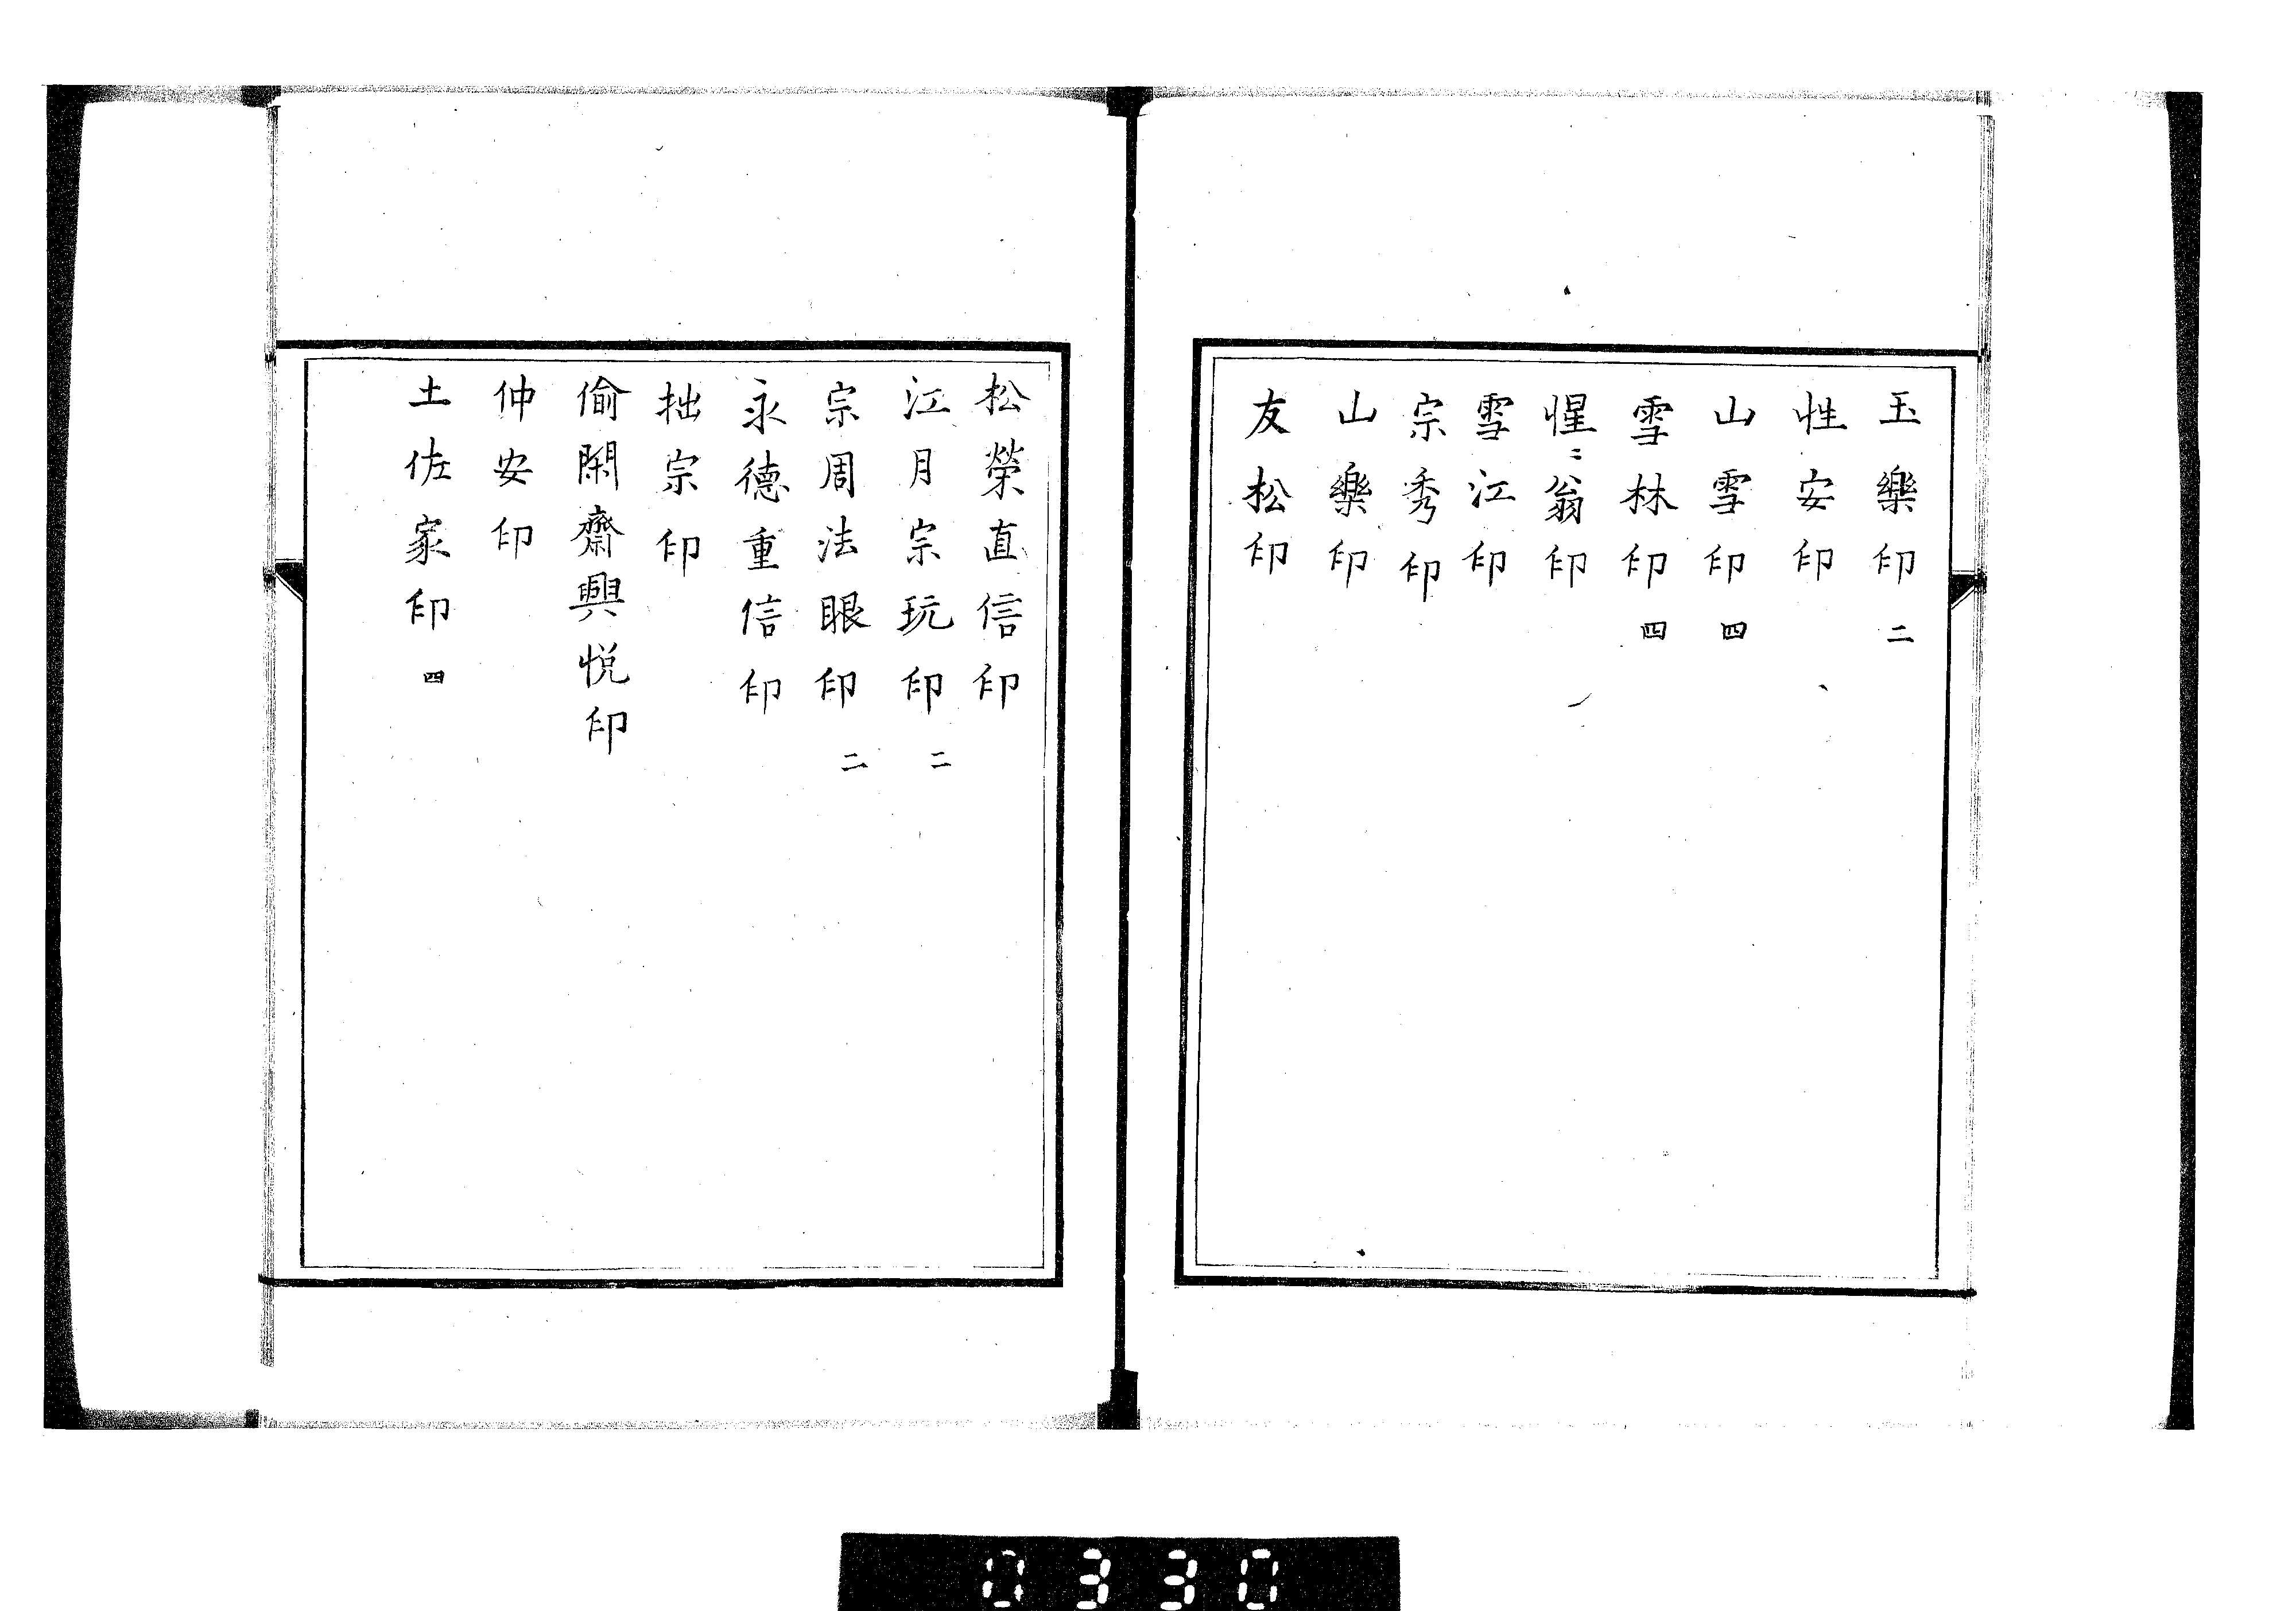 玉樂印 二
性安印
山雪印 四
雪林印 四
惺〻翁印
雪江印
宗秀印
山樂印
友松印
松榮直信印
江月宗玩印 二
宗周法眼印 二
永德重信印
拙宗印
偷閑齋興悦印
仲安印
土佐家印 四
0330